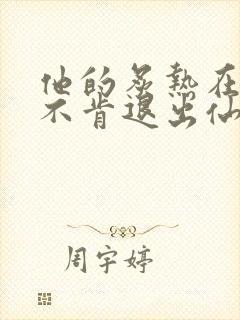 他的炙热在
不肯退出仙
周宇婷